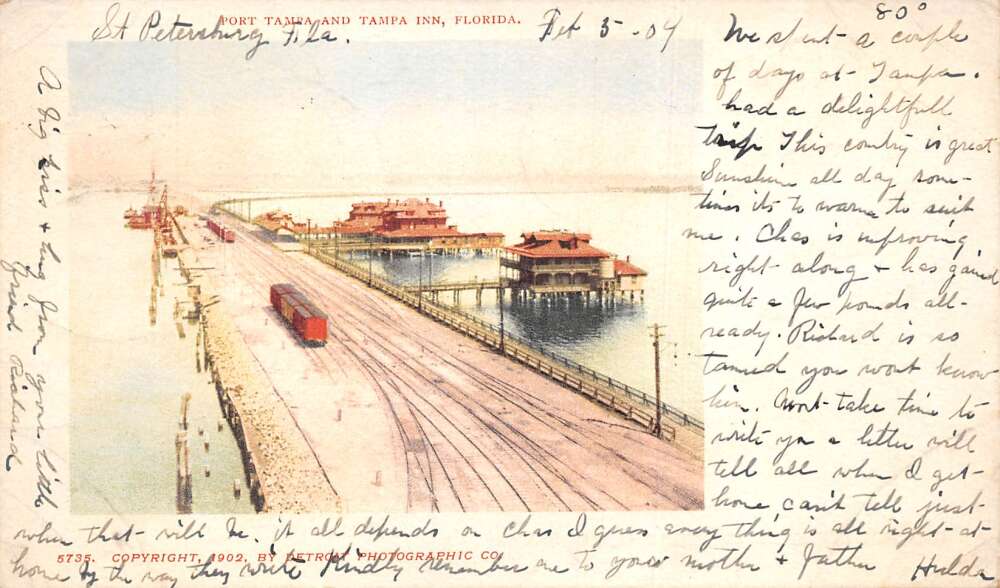 PORT TAMPA AND TAMPA INN, FLORIDA.
St Petersburg Fla. Feb 5-04
80°
We spent a couple
of days at Tampa.
had a delightfull
trip This country is great
Sunshine all day some-
times its to warm to suit
me. Chas is improving
right along + has gained
quite a few pounds all-
ready. Richard is so
tanned you wont know
him. Wont take time to
write you a letter will
tell all when I get
home can't tell just
when that will be. it all depends on Chas I guess every thing is all right at
home by the way they write Kindly remember me to your mother + father Hulda
A big kiss + hug from your little
friend Richard
5735. COPYRIGHT, 1902, BY DETROIT PHOTOGRAPHIC CO.